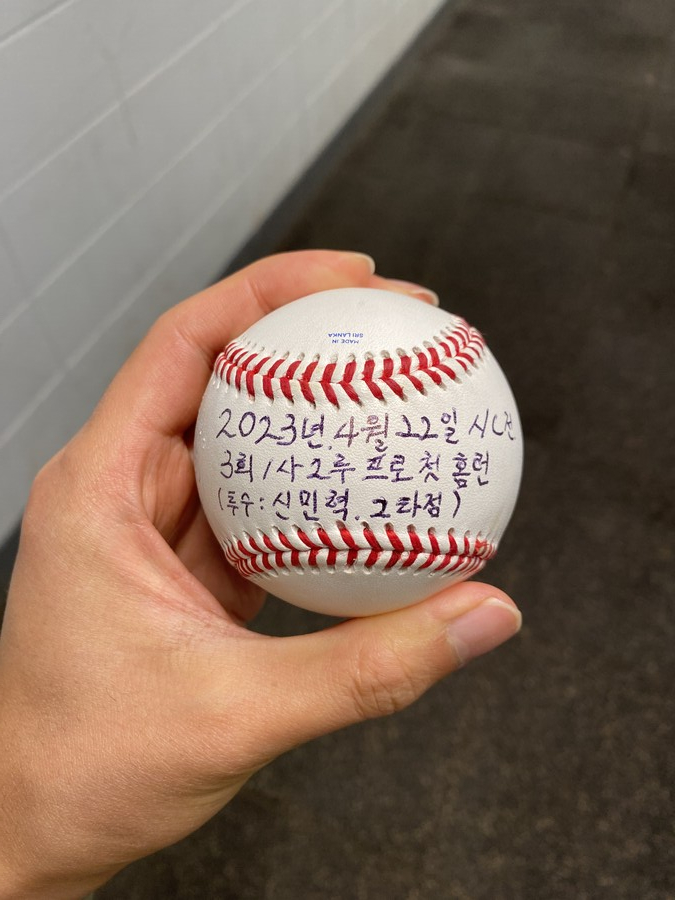 MADE IN
SRI LANKA
2023년.4월 22일 시NC전
3회 1사 2루 프로 첫 홈런
(투수: 신민혁. 2타점)